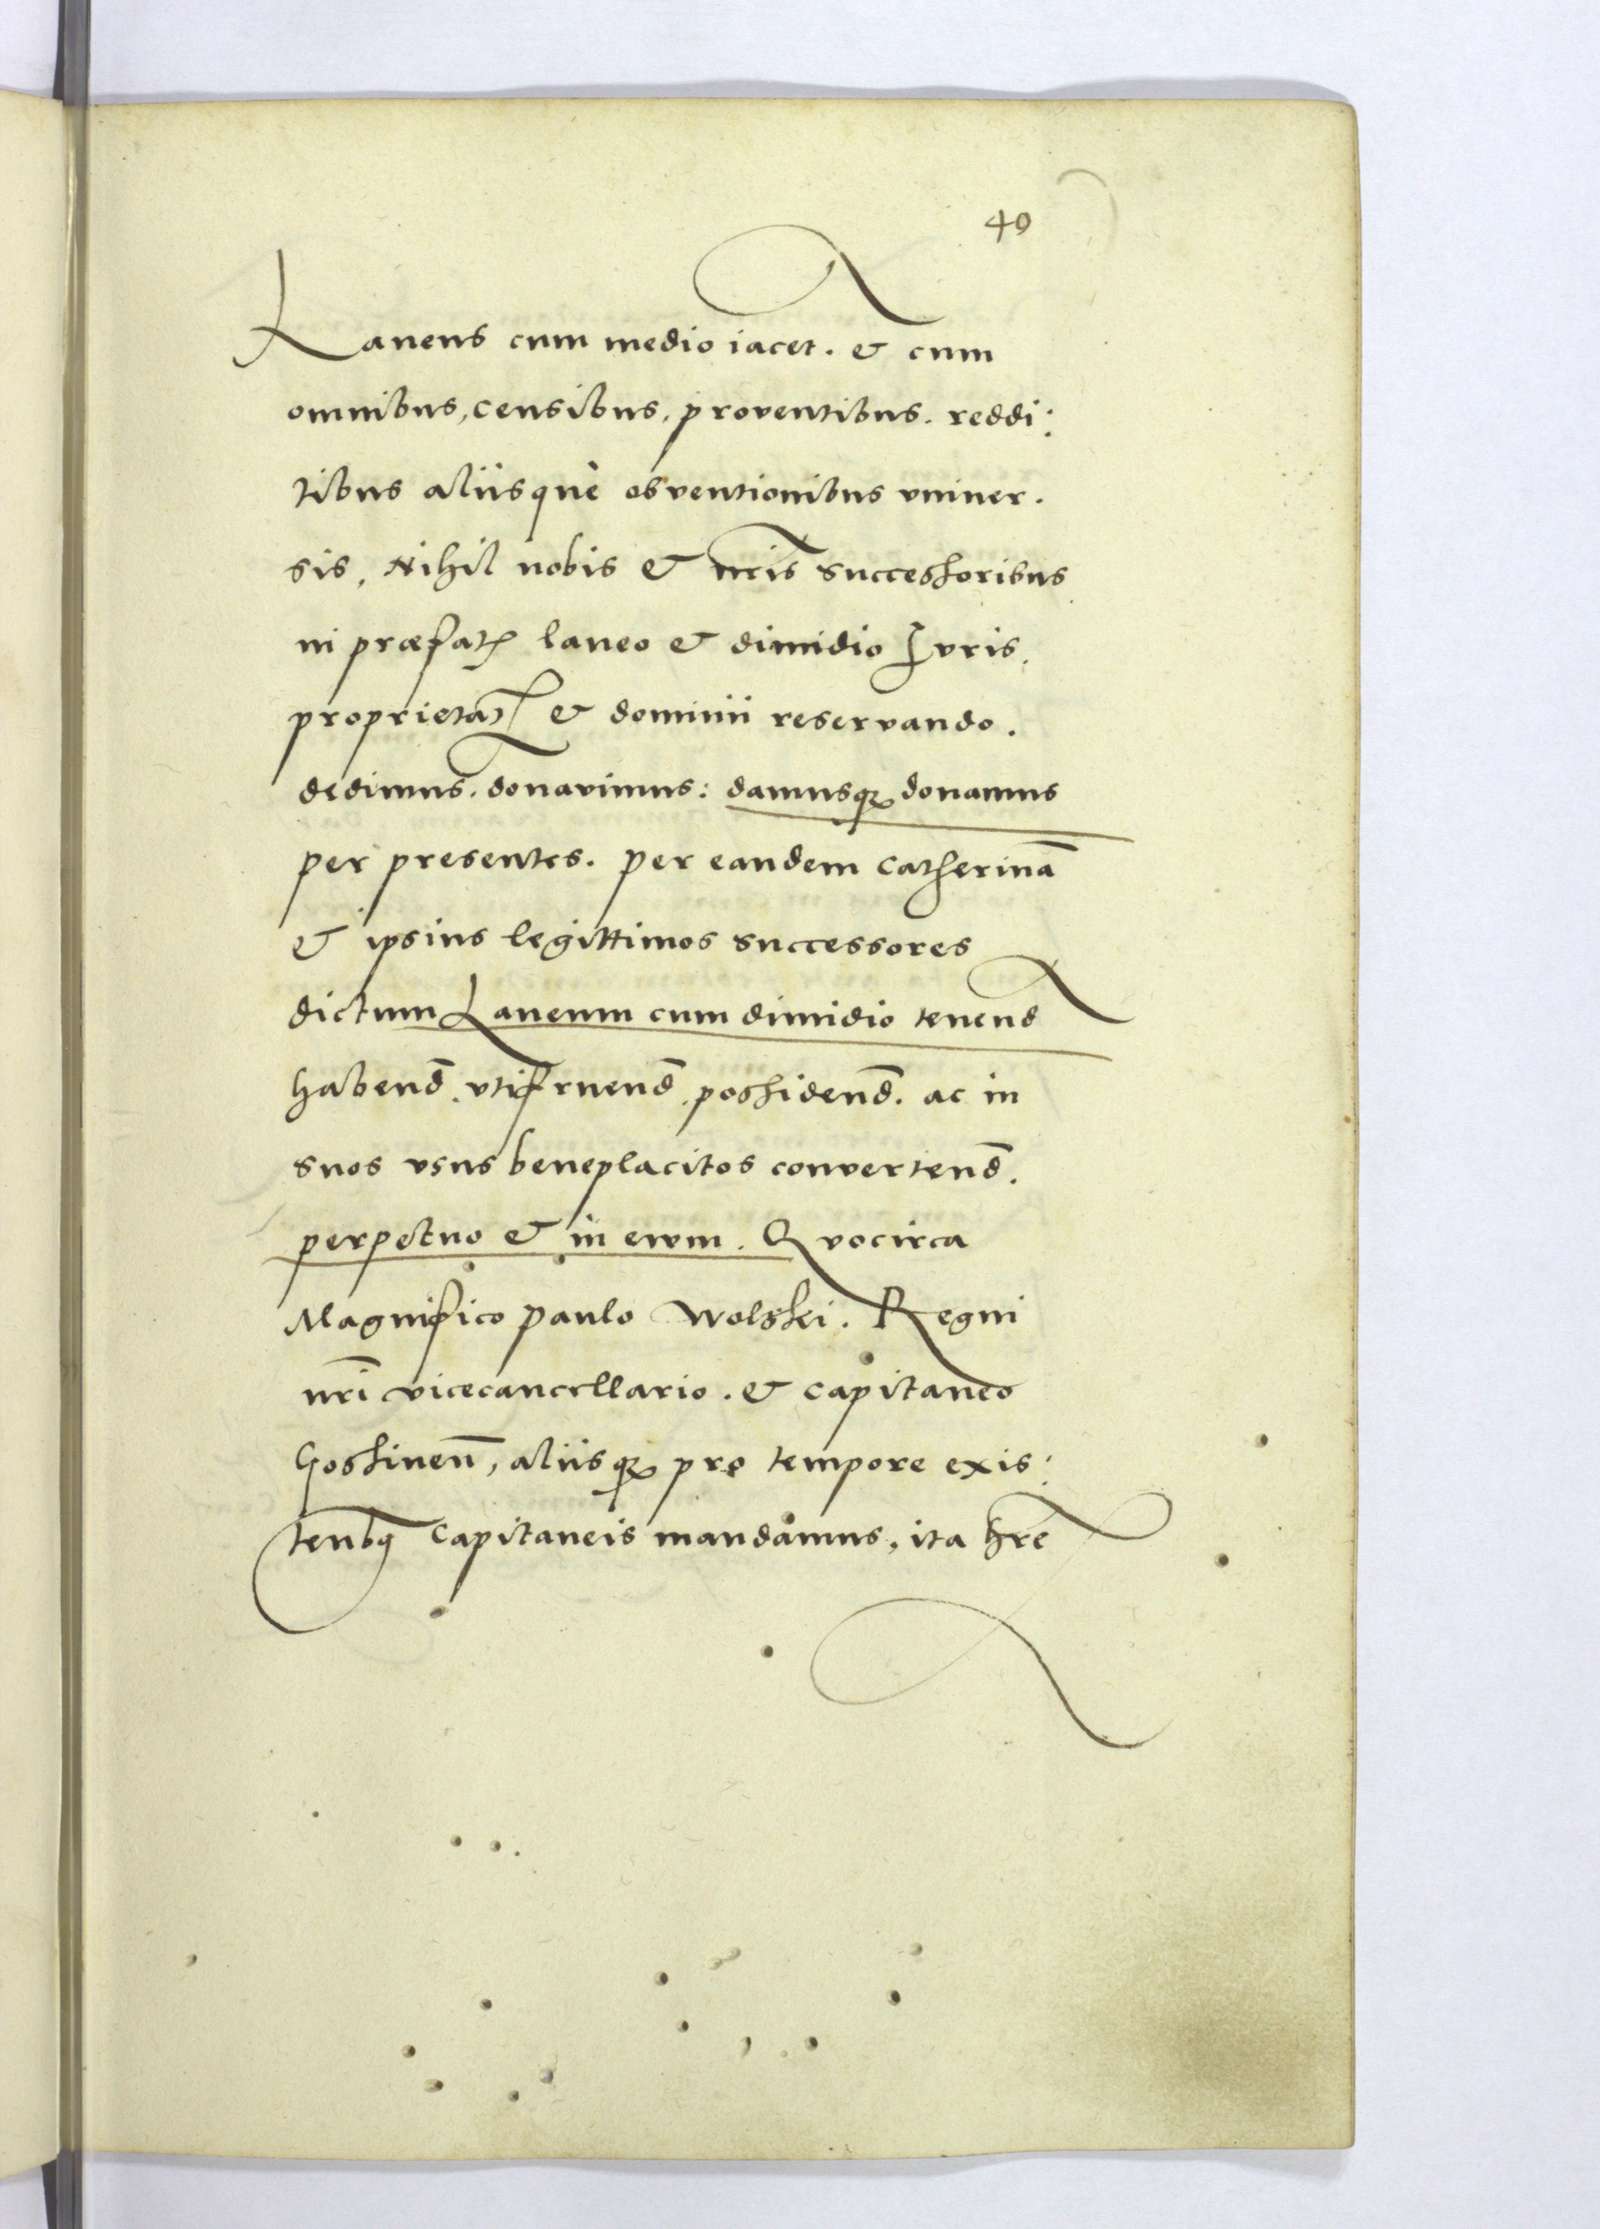 40
Laneus cum medio iacet. & cum
omnibus, censibus, proventibus. reddi:
tibus aliisquè obventionibus univer.
sis, Nihil nobis & nr̃is successoribus
in præfatꝭ laneo & dimidio Iuris,
proprietatꝭ & dominii reservando.
dedimus. donavimus: damusqȝ donamus
per presentes. per eandem Catherinã
& ipsius legittimos successores
dictum Laneum cum dimidio tenend
habend̃. utifruend̃. possidend̃. ac in
suos usus beneplacitos convertend̃.
perpetuo & in evum. Quocirca
Magnifico Paulo Wolski. Regni
nr̃i vicecancellario. & Capitaneo
Gostinen̄, aliisqȝ pro tempore exis:
tenbꝯ Capitaneis mandamus, ita hr̃e